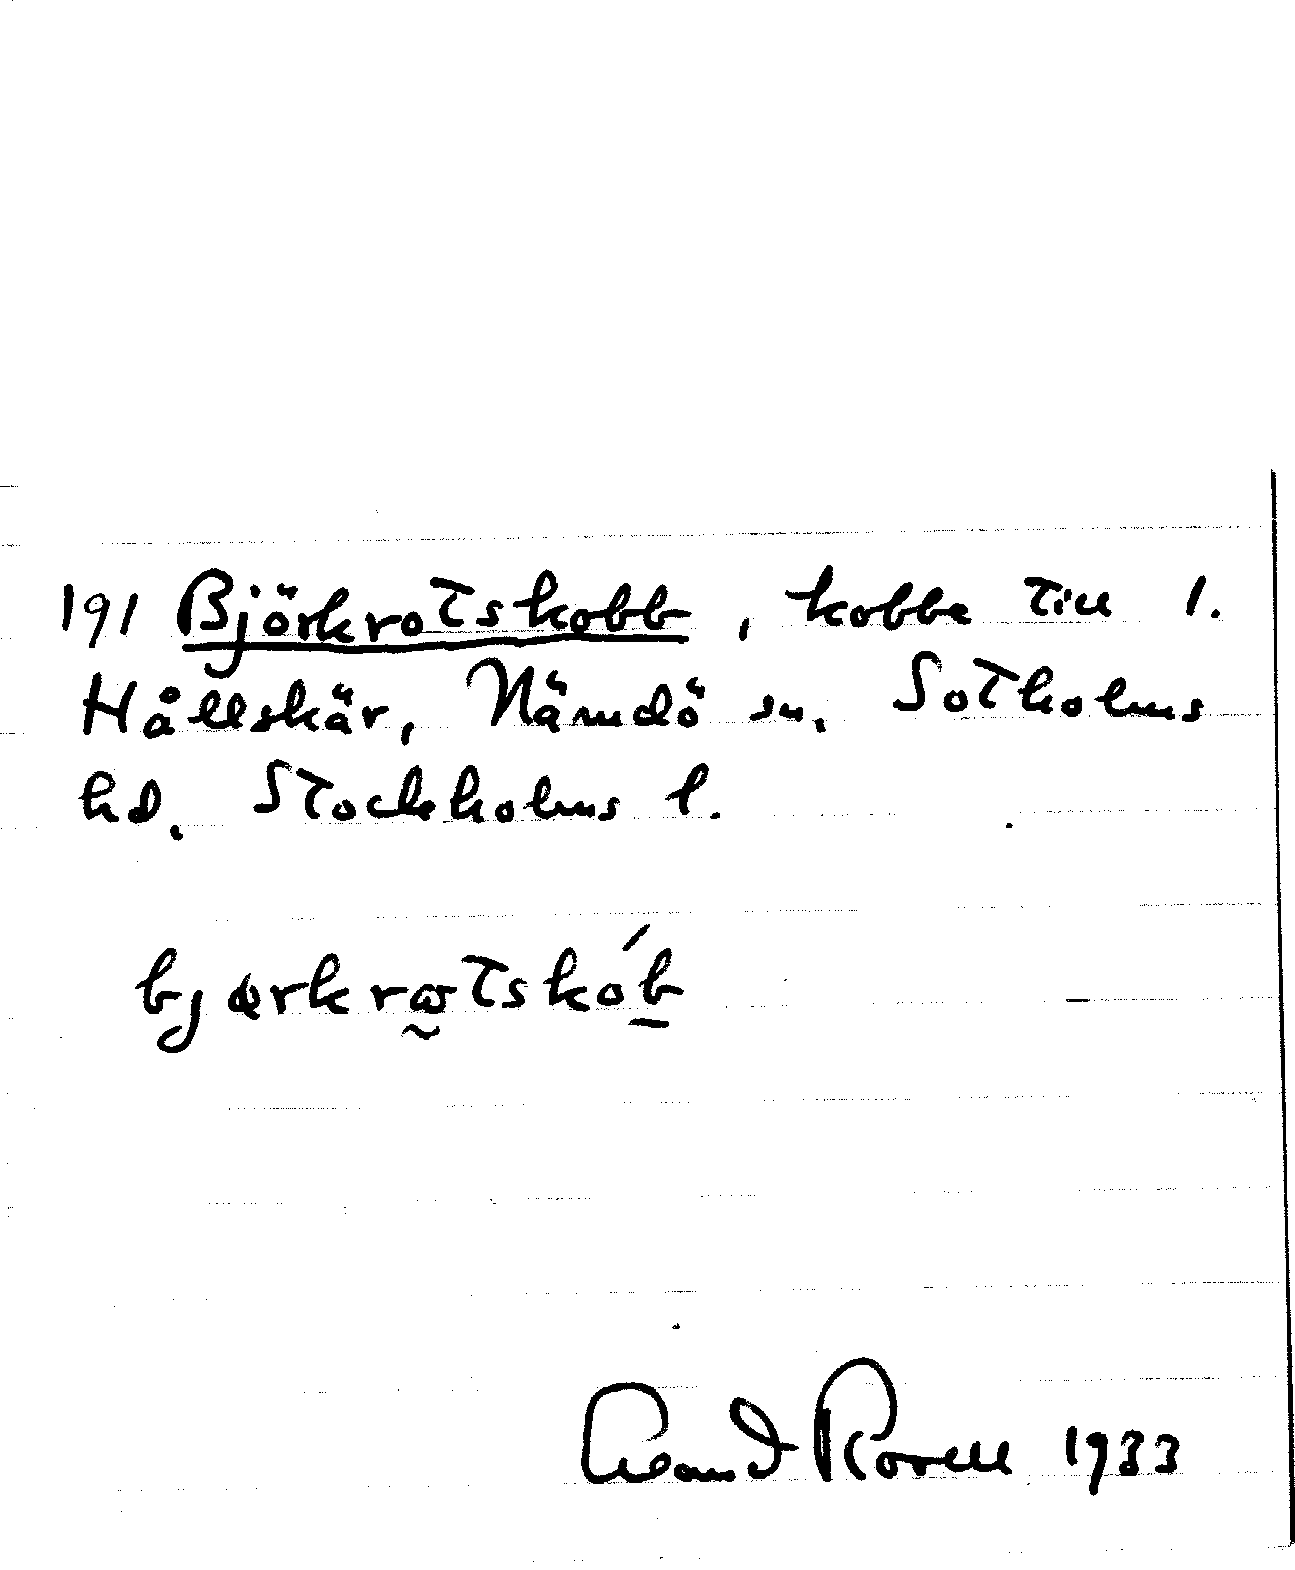 191 Björkrotskobb, kobbe till 1.
Hållskär, Nämdö sn. Sotholms
hd. Stockholms l.
bjørkrωtskób
1933